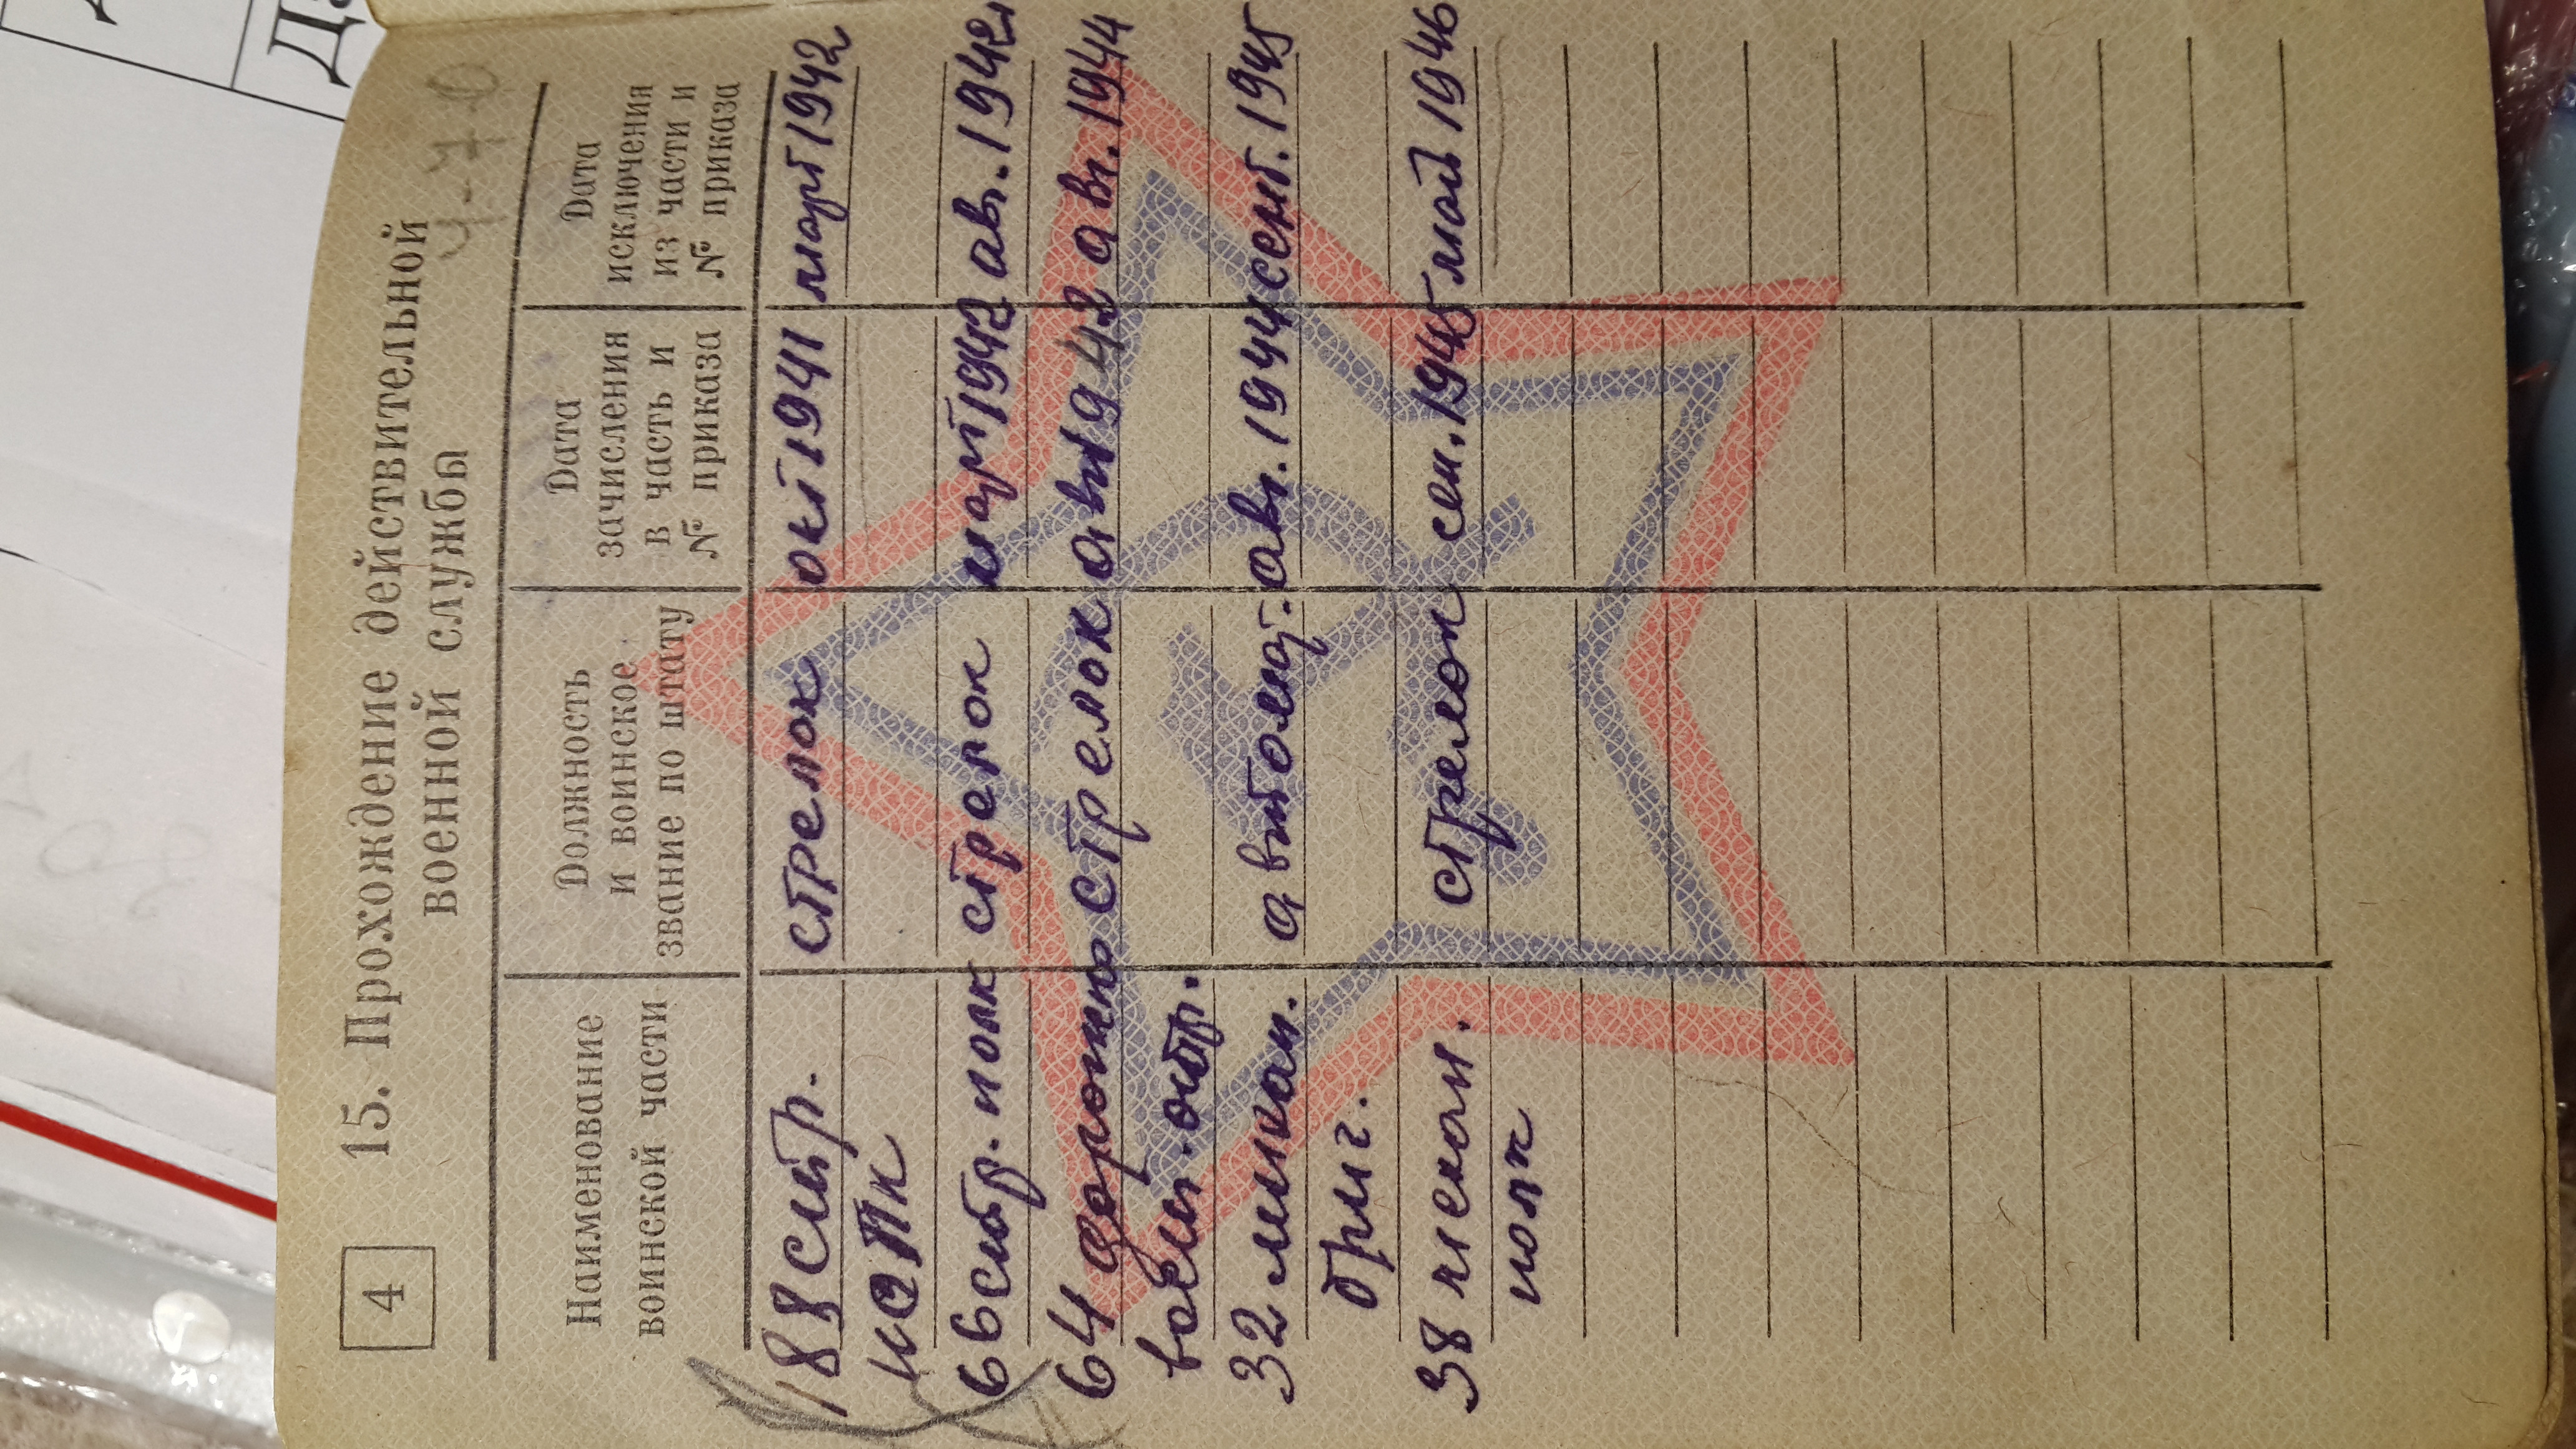 4
15. Прохождение действительной
военной службы
4-70
Наименование
воинской части
Должность
и воинское
звание по штату
Дата
зачисления
в часть и
№ приказа
Дата
исключения
из части и
№ приказа
188 стр. стрелок окт 1941 март 1942
полк
66 стр. полк стрелок март 1942 ав. 1942
64 дорожно стрелок авг 1942 авг. 1944
воен. отр.
32 механ. автомат. авг. 1944 сент. 1945
бриг.
38 механ. стрелок сен. 1945 май 1946
полк